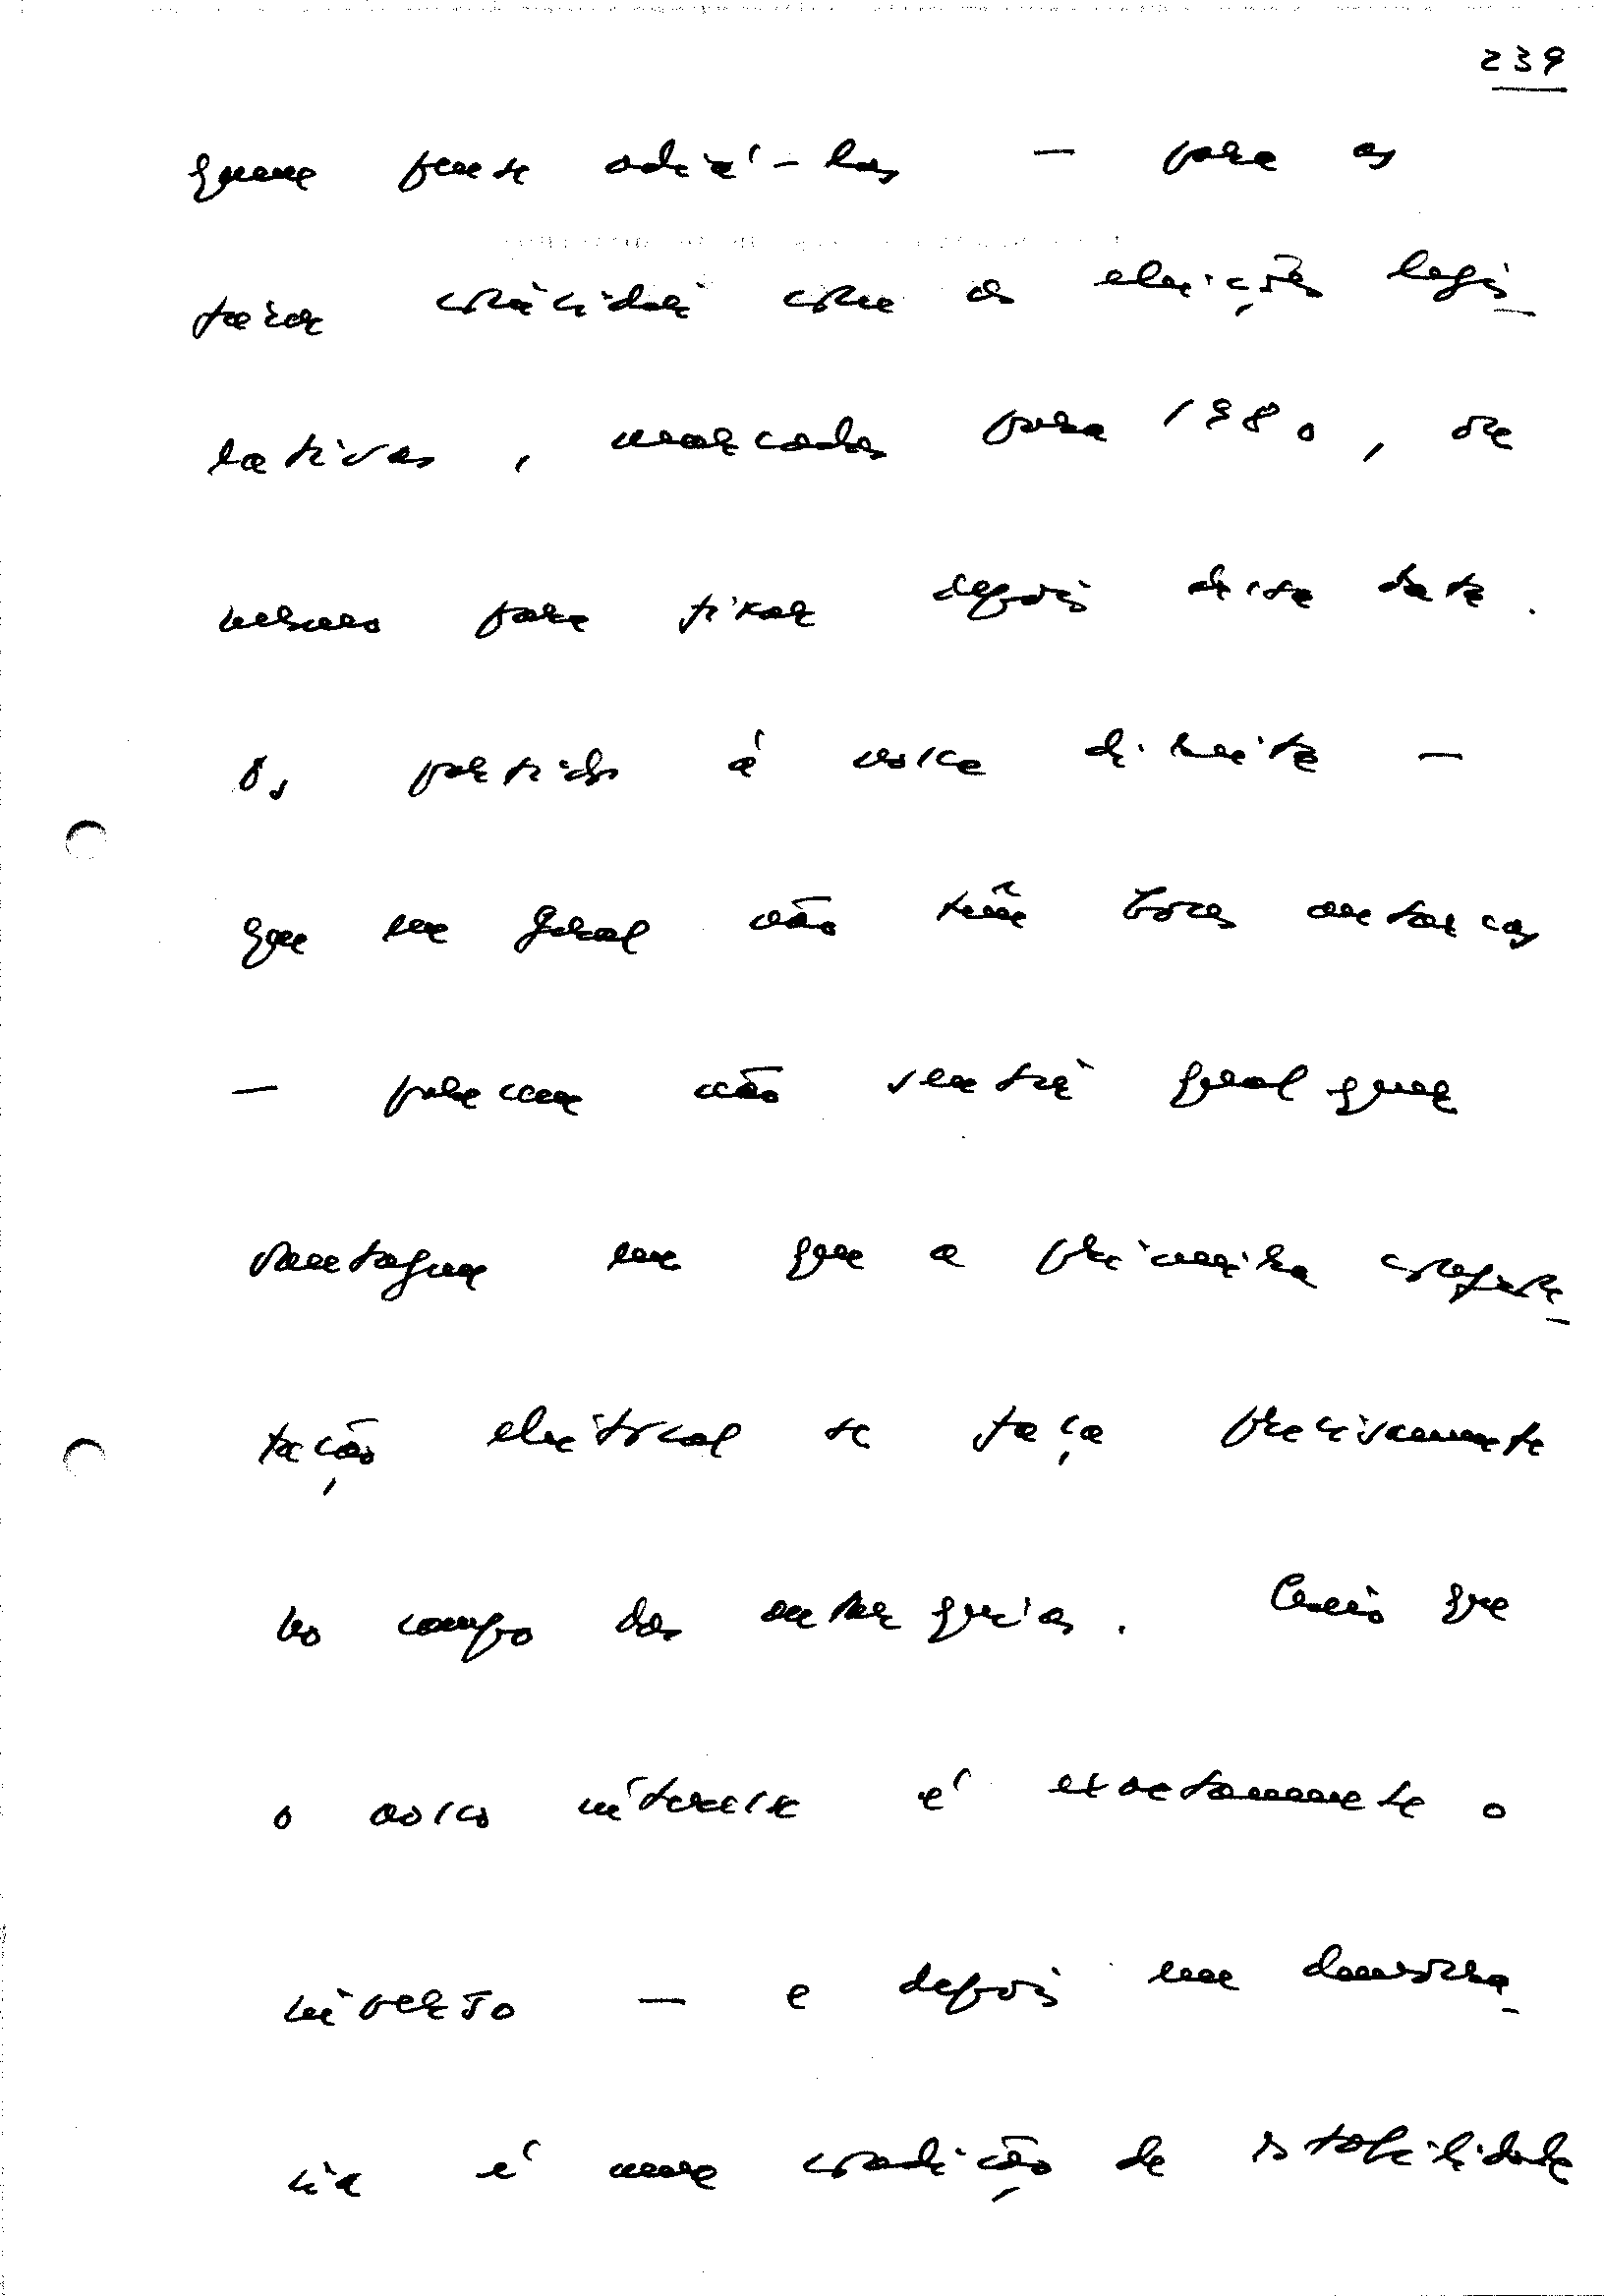 239
quem pense adiá-las — para as
fazer coincidir com as eleições legis
lativas, marcadas para 1980, ou
mesmo para ficar depois desta data.
Os partidos à nossa direita —
que em geral não têm boas autarcas
— parecem não sentir qualquer
vantagem em que a primeira confron
tação eleitoral se faça precisamente
no campo das autarquias. Creio que
o nosso interesse é exactamente o
inverso — e depois em democra
cia é uma condição de estabilidade